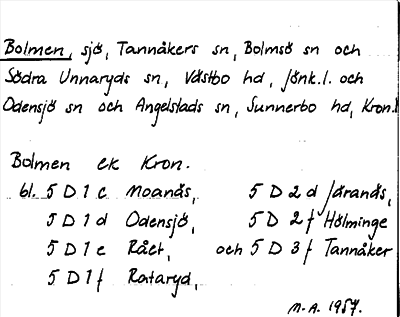 Bolmen, sjö, Tannåkers sn, Bolmsö sn och
Södra Unnaryds sn, Västbo hd, Jönk.l. och
Odensjö sn och Angelstads sn, Sunnerbo hd, Kron.l
Bolmen ek Kron.
bl. 5 D 1 c Moanäs, 5 D 2 d Järanäs,
5 D 1 d Odensjö, 5 D 2 f Hölminge
5 D 1 e Rået, och 5 D 3 f Tannåker
5 D 1 f Rataryd,
M.A. 1957.